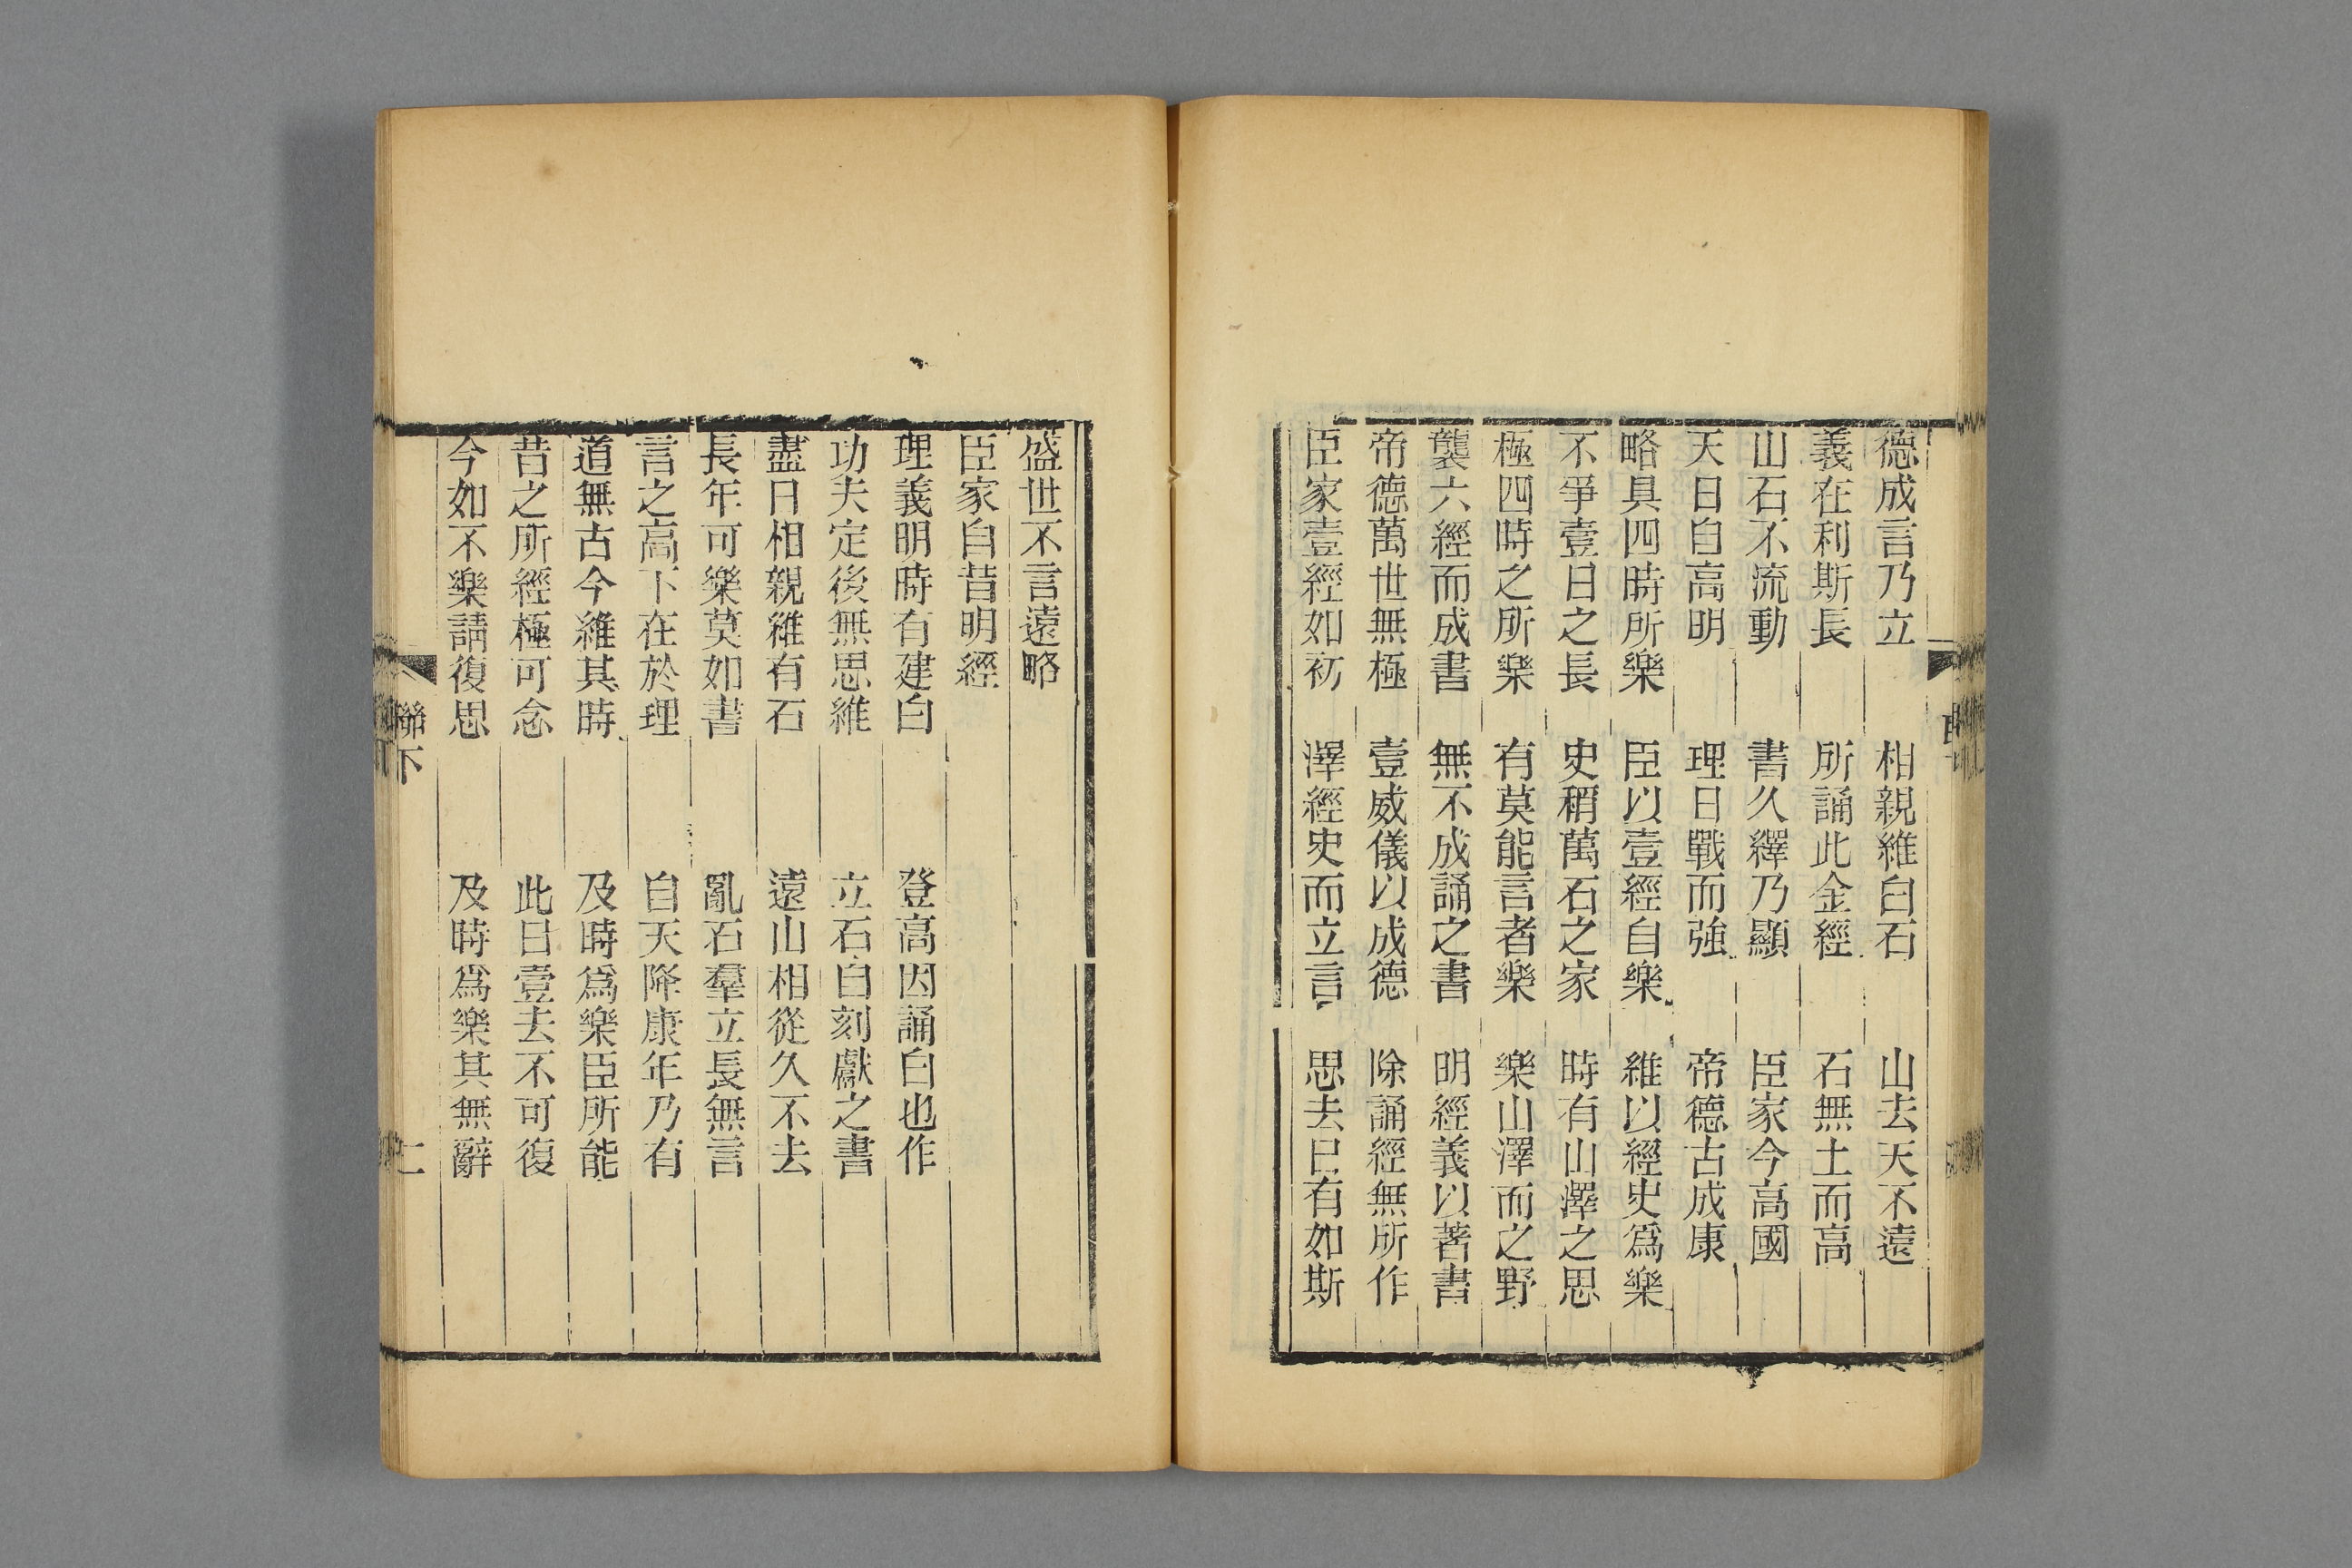 德成言乃立　相親維白石　山去天不遠
義在利斯長　所誦此金經　石無土而高
山石不流動　書久繹乃顯　臣家今高國
天日自高明　理日戰而強　帝德古成康
略具四時所樂　臣以壹經自樂　維以經史爲樂
不爭壹日之長　史稱萬石之家　時有山澤之思
極四時之所樂　有莫能言者樂　樂山澤而之野
襲六經而成書　無不成誦之書　明經義以著書
帝德萬世無極　壹威儀以成德　除誦經無所作
臣家壹經如初　澤經史而立言　思去日有如斯
盛世不言遠略
臣家自昔明經
理義明時有建白　登高因誦白也作
功夫定後無思維　立石自刻獻之書
盡日相親維有石　遠山相從久不去
長年可樂莫如書　亂石羣立長無言
言之高下在於理　自天降康年乃有
道無古今維其時　及時爲樂臣所能
昔之所經極可念　此日壹去不可復
今如不樂請復思　及時爲樂其無辭
聯下
二